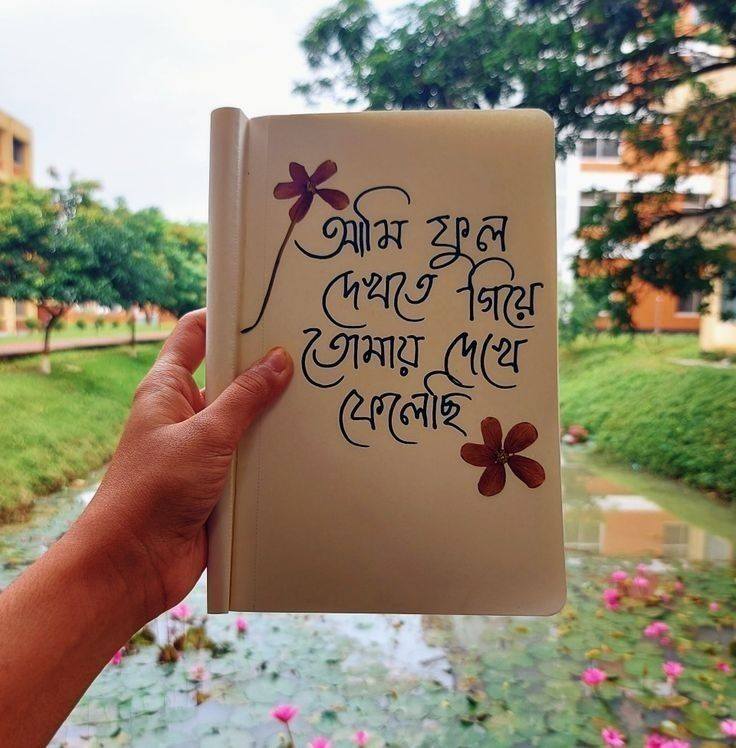 আমি ফুল
দেখতে গিয়ে
তোমায় দেখে
ফেলেছি